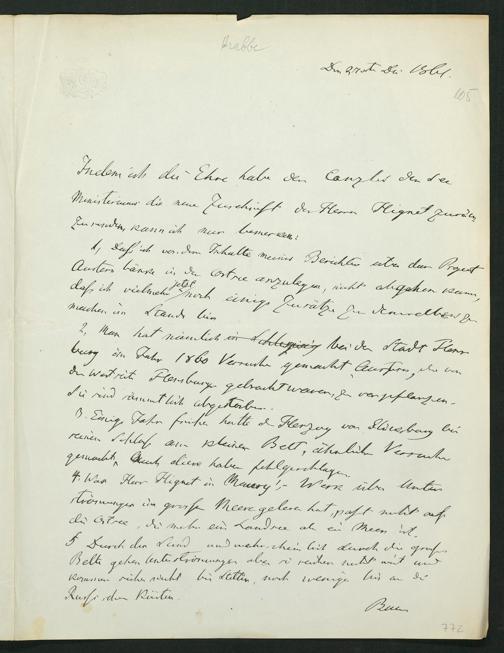 Krabbe
Den 27sten Dec 1861.
105
Indem ich die Ehre habe der Canzlei des See
Ministeriums die neue Zuschrift des Herrn Hignet zurück
zusenden, kann ich nur bemerken:
1, daß ich von dem Inhalte meines Berichtes über das Project
Austernbänke in der Ostsee anzulegen, nicht abgehen kann,
daß ich vielmehr jetzt noch einige Zusätze zu demselben zu
machen im Stande bin
2, Man hat nämlich in Schleswig bei der Stadt Flens
burg im Jahr 1860 Versuche gemacht Austern, die von
der Westseite Flensburgs gebracht waren, zu verpflanzen.
Sie sind sämmtlich abgestorben.
3. Einige Jahre früher hatte der Herzog von Glücksburg bei
seinem Schloß am kleinen Belt, ähnliche Versuche
gemacht, Auch diese haben fehlgeschlagen
4. Was Herr Hignet in Maury's Werk über Unter
strömungen im großen Meere gelesen hat, paßt nicht auf
die Ostsee, die mehr ein Landsee als ein Meer ist.
5, Durch den Sund, und wahrscheinlich durch die großen
Belte gehen Unterströmungen aber sie reichen nicht weit und
kommen sicher nicht bis Stettin, noch weniger bis an die
Russischen Küsten.
Baer
772